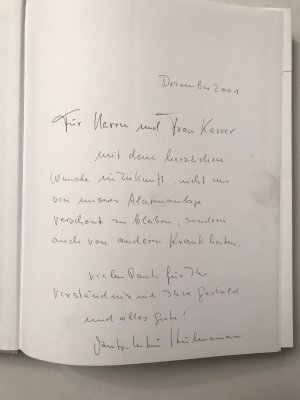 Dezember 2001
Für Herrn und Frau Karrer
mit dem herzlichen
Wunsche in Zukunft nicht nur
von unserer Alarmanlage
verschont zu bleiben, sondern
auch von anderen Krankheiten.
Vielen Dank für Ihr
Verständnis und Ihre Geduld
und alles Gute!